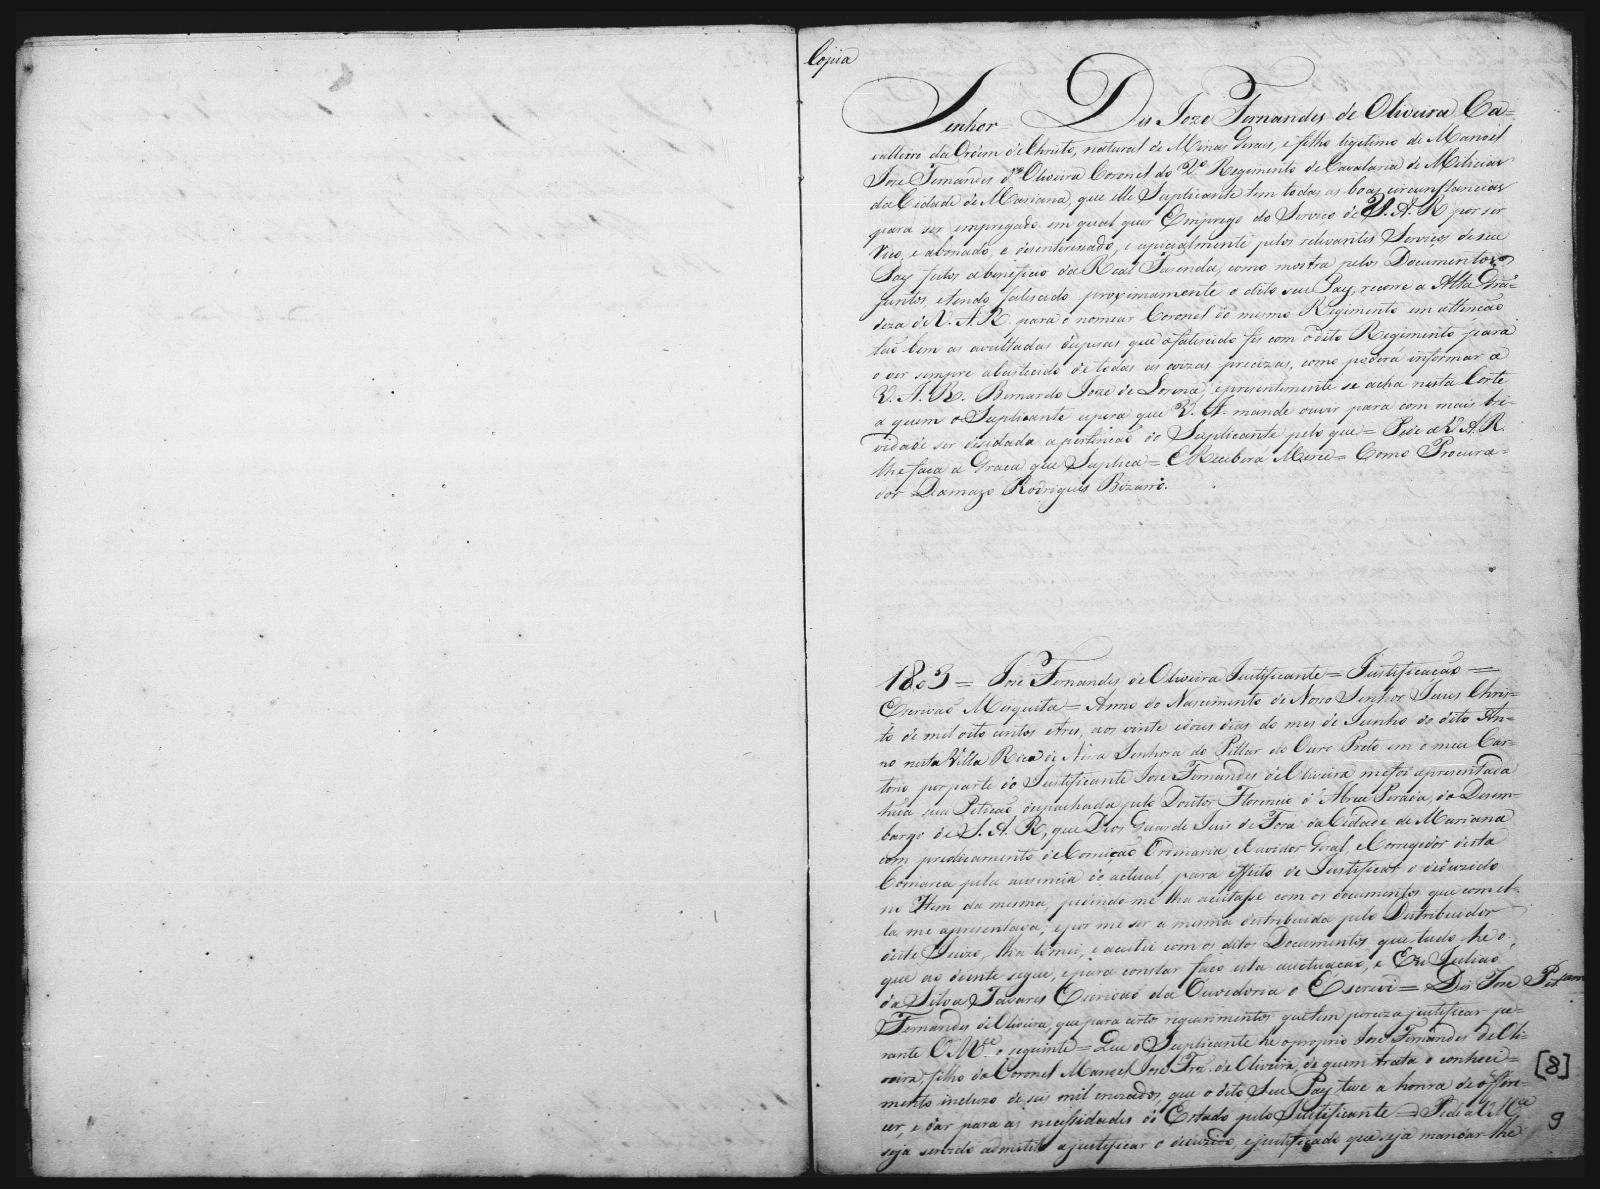 Copia
Senhor = Diz Joze Fernandes de Oliveira Ca=
valleiro da Ordem de Christo, natural de Minas Geraes, e filho legitimo de Manoel
Joze Fernandes d'Oliveira Coronel do 2.º Regimento de Cavalaria de Milicias
da Cidade de Mariana, que elle Suplicante tem todas as boas circunstancias
para ser empregado em qual quer Emprego do Serviço de V. A. R. por ser
rico, e abonado, e desenteressado, e especialmente pelos relevantes Serviços de seu
Pay feitos a beneficio da Real Fasenda, como mostra pelos Documentos
juntos, etendo falescido proximamente o dito seu Pay, recorre a Alta Gran=
deza de V. A. R. para o nomear Coronel do mesmo Regimento em attenção
tão bem as avultadas despesas que o falescido fes com o dito Regimento para
o ver sempre abastecido de todas as coizas precizas, como poderá informar a
V. A. R. Bernardo Joze de Lorena, e presentemente se acha nesta Corte
a quem o Suplicante espera que V. A. mande ouvir para com mais bre=
vidade ser desidada a pertenção do Suplicante pelo que = Pede a V. A. R.
lhe faça a Graça que Suplica = E Recebera Merce = Como Procura=
dor Damazo Rodrigues Bizarro.
1803 = José Fernandes de Oliveira Justificante = Justificação =
Escrivão Mesquita = Anno do Nascimento de Nosso Senhor Jesus Chris=
to de mil oito centos e tres, aos vinte e dous dias do mes de Junho do dito An=
no nesta Villa Rica de Nossa Senhora do Pillar do Ouro Preto em o meu Car=
torio por parte do Justificante José Fernandes de Oliveira me foi apresentada
huma sua Petição despachada pelo Doutor Florencio d'Abreu Perada, do Desem=
bargo de S. A. R., que Deos Guarde Juis de Fora da Cidade de Mariana
com predicamento de Correição Ordinaria, e Ouvidor Geral, e Corregidor desta
Comarca pela ausencia do actual, para effeito de Justificar o deduzido
no Item da mesma, pedindo me lha aceitasse com os documentos que com el=
la me apresentava; e por me ser a mesma destribuida pelo Distribuidor
deste Juizo, lha tomei, e aceitei com os ditos Documentos, que tudo he o
que ao diante segue, e para constar faço esta auctuação, e Eu Julião
da Silva Tavares Escrivão da Ouvidoria o Escrevi = Diz José Petiçam
Fernandes de Oliveira, que para certos requerimentos que tem preciza justificar pe=
rante V. M.ce o seguinte = Que o Suplicante he o proprio José Fernandes de Oli=
veira, filho do Coronel Manoel José Frz. de Oliveira, de quem trata o conheci=
mento incluzo de seis mil cruzados, que o dito Seu Pay teve a honra de offere=
cer, e dar para as necessidades do Estado pelo Justificante = Pede a V. M.ce
seja servido admitilo a justificar o deduzido, e justificado que seja mandar lhe
[8]
9